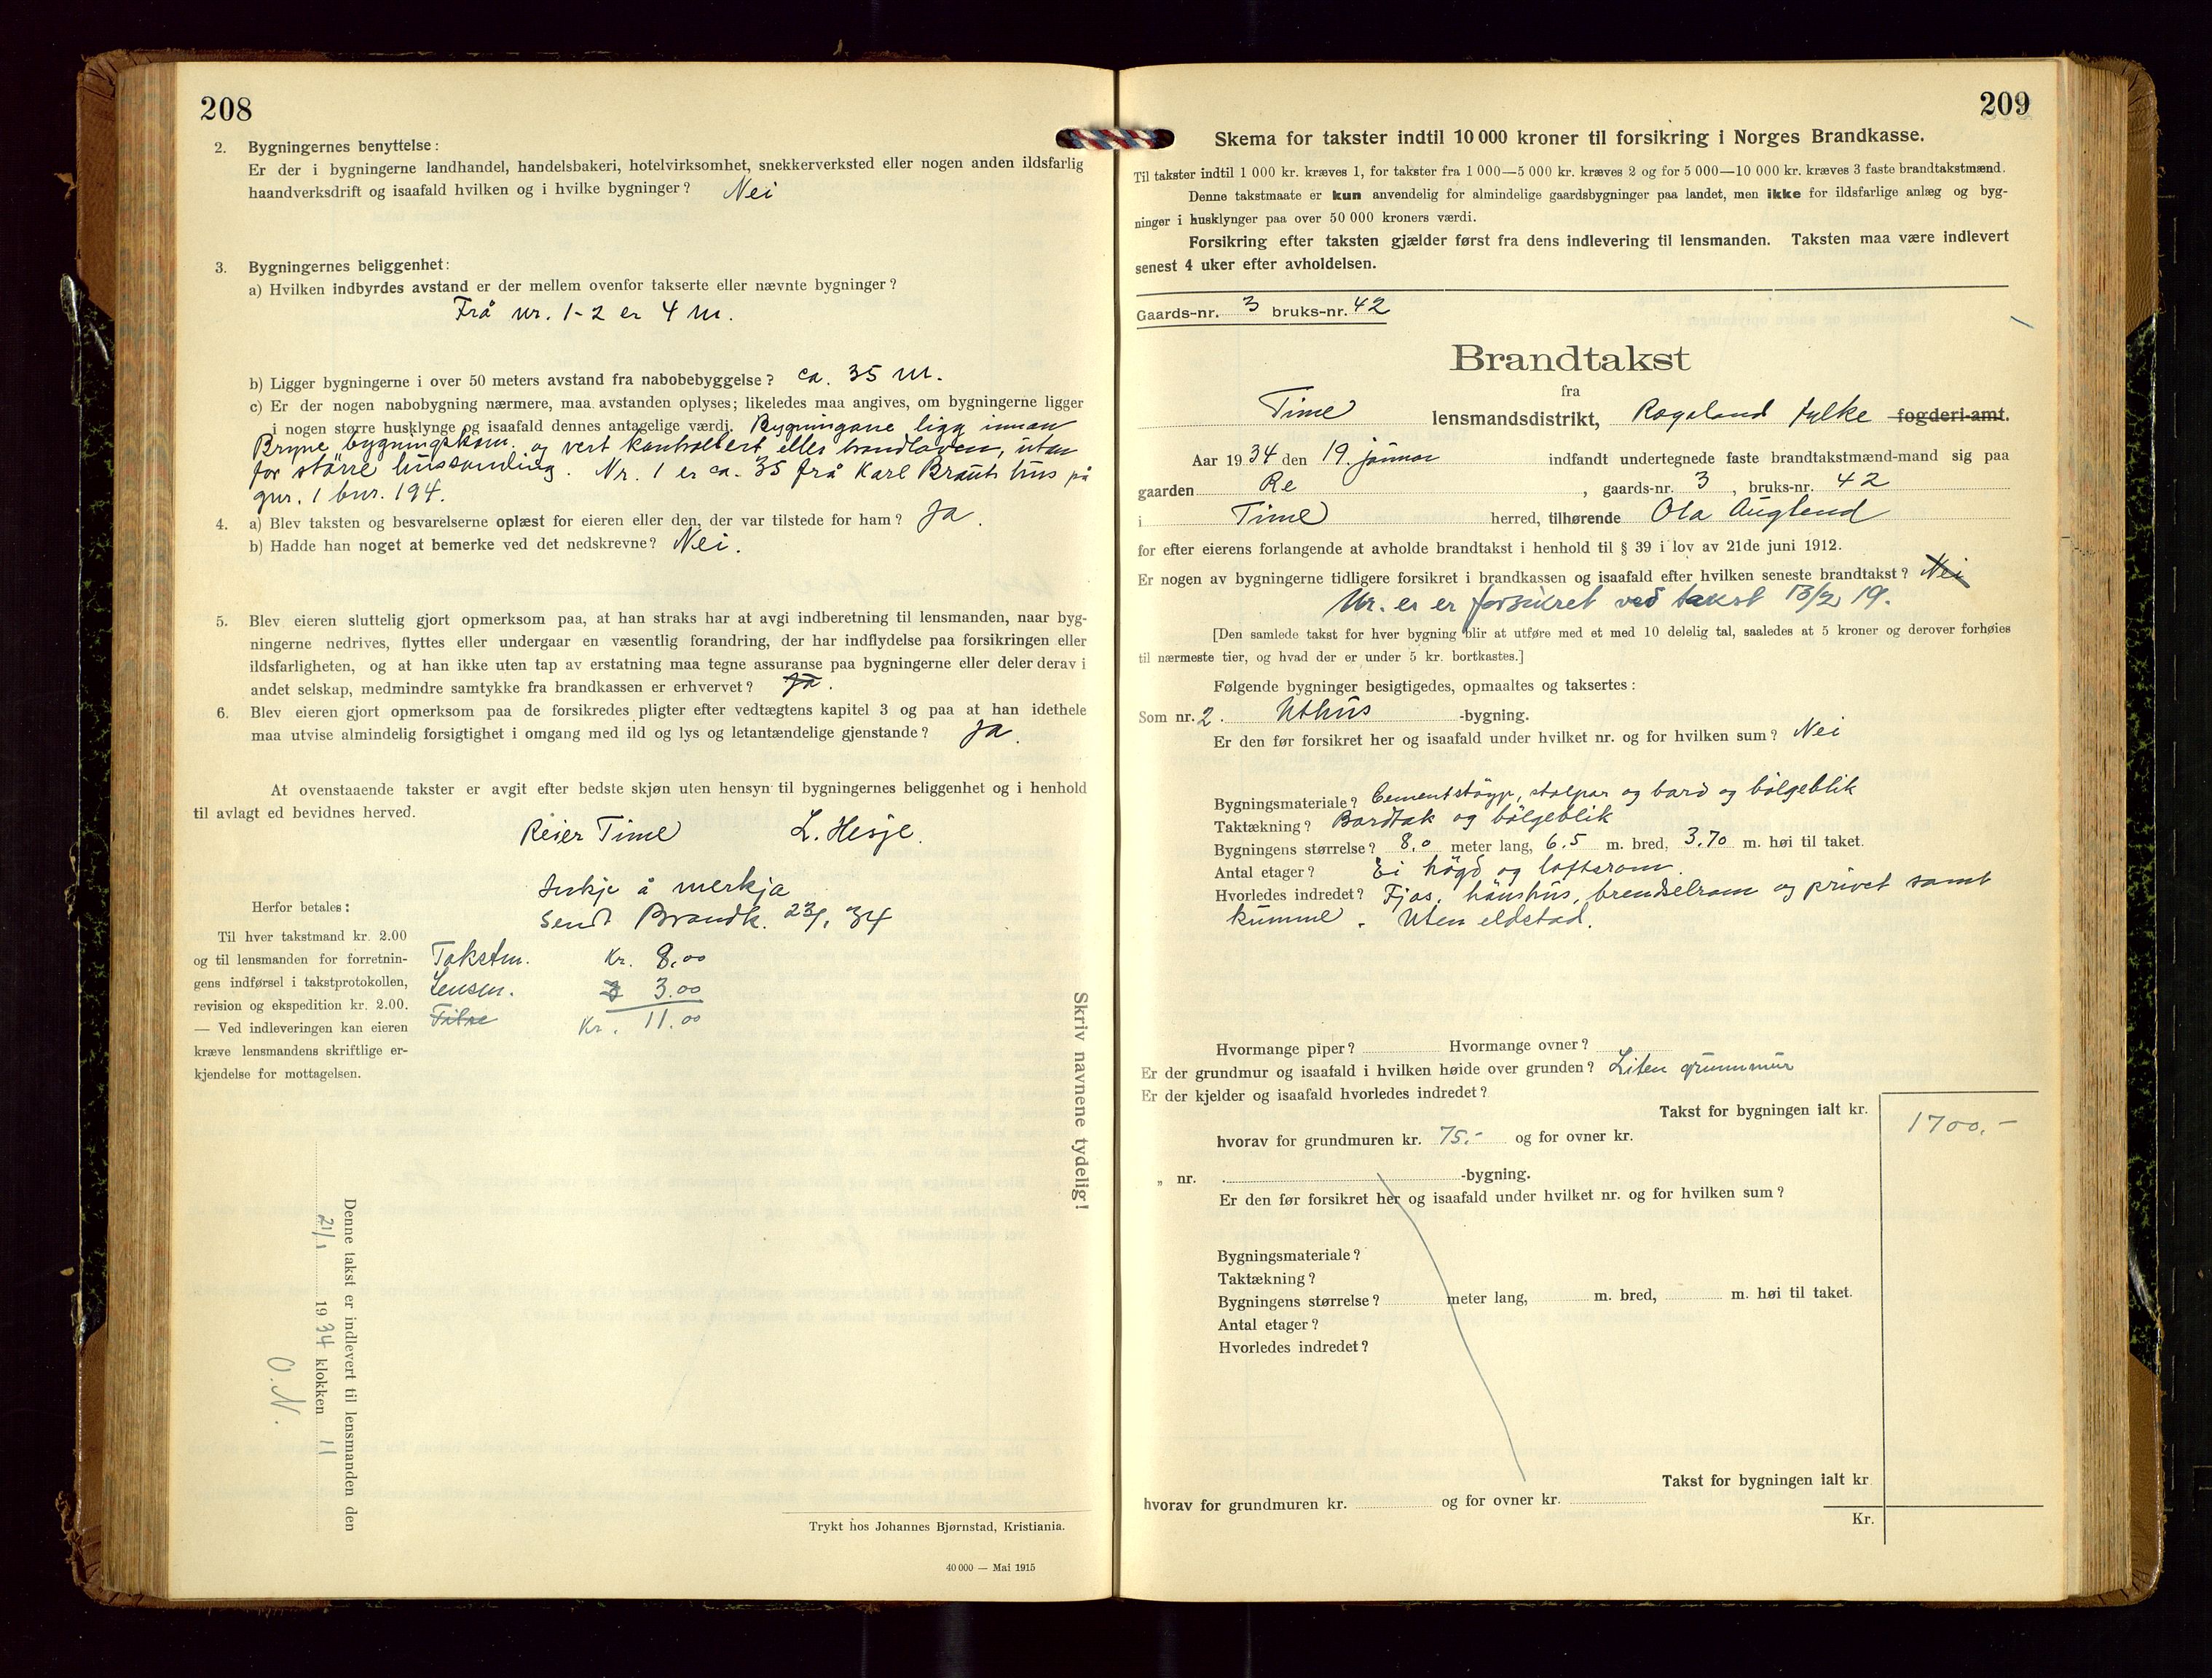 208
2. Bygningernes benyttelse:
Er der i bygningerne landhandel, handelsbakeri, hotelvirksomhet, snekkerverksted eller nogen anden ildsfarlig
haandverksdrift og isaafald hvilken og i hvilke bygninger? Nei
3. Bygningernes beliggenhet:
a) Hvilken indbyrdes avstand er der mellem ovenfor takserte eller nævnte bygninger?
Frå nr. 1-2 er 4 m.
b) Ligger bygningerne i over 50 meters avstand fra nabobebyggelse? ca. 35 m.
c) Er der nogen nabobygning nærmere, maa avstanden oplyses; likeledes maa angives, om bygningerne ligger
i nogen større husklynge og isaafald dennes antagelige værdi. Bygningane ligg innan
Bryne bygningskom. og vert kontrollert etter brandloven, utan
for större hussamling. Nr. 1 er ca. 35 frå Karl Brauts hus på
gnr. 1 bnr. 194.
4. a) Blev taksten og besvarelserne oplæst for eieren eller den, der var tilstede for ham? Ja.
b) Hadde han noget at bemerke ved det nedskrevne? Nei.
5. Blev eieren sluttelig gjort opmerksom paa, at han straks har at avgi indberetning til lensmanden, naar byg-
ningerne nedrives, flyttes eller undergaar en væsentlig forandring, der har indflydelse paa forsikringen eller
ildsfarligheten, og at han ikke uten tap av erstatning maa tegne assuranse paa bygningerne eller deler derav i
andet selskap, medmindre samtykke fra brandkassen er erhvervet? Ja.
6. Blev eieren gjort opmerksom paa de forsikredes pligter efter vedtægtens kapitel 3 og paa at han idethele
maa utvise almindelig forsigtighet i omgang med ild og lys og letantændelige gjenstande? Ja.
At ovenstaaende takster er avgit efter bedste skjøn uten hensyn til bygningernes beliggenhet og i henhold
til avlagt ed bevidnes herved.
Reier Time L. Hesje.
Inkje å merkja
Sendt Brandk. 23/1 34
Herfor betales:
Til hver takstmand kr. 2.00
og til lensmanden for forretnin-
gens indførsel i takstprotokollen,
revision og ekspedition kr. 2.00.
— Ved indleveringen kan eieren
kræve lensmandens skriftlige er-
kjendelse for mottagelsen.
Takstm. Kr. 8,00
Lensm. 3.00
Kr. 11.00
Skriv navnene tydelig!
Denne takst er indlevert til lensmanden den
21/1 1934 klokken 11
O.N.
Trykt hos Johannes Bjørnstad, Kristiania.
40 000 — Mai 1915
209
Skema for takster indtil 10 000 kroner til forsikring i Norges Brandkasse.
Til takster indtil 1 000 kr. kræves 1, for takster fra 1 000—5 000 kr. kræves 2 og for 5 000—10 000 kr. kræves 3 faste brandtakstmænd.
Denne takstmaate er kun anvendelig for almindelige gaardsbygninger paa landet, men ikke for ildsfarlige anlæg og byg-
ninger i husklynger paa over 50 000 kroners værdi.
Forsikring efter taksten gjælder først fra dens indlevering til lensmanden. Taksten maa være indlevert
senest 4 uker efter avholdelsen.
Gaards-nr. 3 bruks-nr. 42
Brandtakst
fra
Time lensmandsdistrikt, Rogaland fylke fogderi-amt.
Aar 1934 den 19. januar indfandt undertegnede faste brandtakstmænd-mand sig paa
gaarden Re, gaards-nr. 3, bruks-nr. 42
i Time herred, tilhørende Ola Auglend
for efter eierens forlangende at avholde brandtakst i henhold til § 39 i lov av 21de juni 1912.
Er nogen av bygningerne tidligere forsikret i brandkassen og isaafald efter hvilken seneste brandtakst? Nei
Nr. er er forsikret ved takst 13/2 19.
[Den samlede takst for hver bygning blir at utføre med et med 10 delelig tal, saaledes at 5 kroner og derover forhøies
til nærmeste tier, og hvad der er under 5 kr. bortkastes.]
Følgende bygninger besigtigedes, opmaaltes og taksertes:
Som nr. 2. Uthus -bygning.
Er den før forsikret her og isaafald under hvilket nr. og for hvilken sum? Nei
Bygningsmateriale? Cementstöyp, stolpar og bord og bölgeblik
Taktækning? Bordtak og bölgeblik
Bygningens størrelse? 8,0 meter lang, 6.5 m. bred, 3.70 m. høi til taket.
Antal etager? Ei högd og loftsrom.
Hvorledes indredet? Fjos, hönshus, brendselrom og privet samt
kumme. Uten eldstad.
Hvormange piper? Hvormange ovner?
Er der grundmur og isaafald i hvilken høide over grunden? Liten grunnmur
Er der kjelder og isaafald hvorledes indredet?
Takst for bygningen ialt kr. 1700,-
hvorav for grundmuren kr. 75.- og for ovner kr.
„ nr. -bygning.
Er den før forsikret her og isaafald under hvilket nr. og for hvilken sum?
Bygningsmateriale?
Taktækning?
Bygningens størrelse? meter lang, m. bred, m. høi til taket.
Antal etager?
Hvorledes indredet?
Takst for bygningen ialt kr
hvorav for grundmuren kr. og for ovner kr.
Kr.